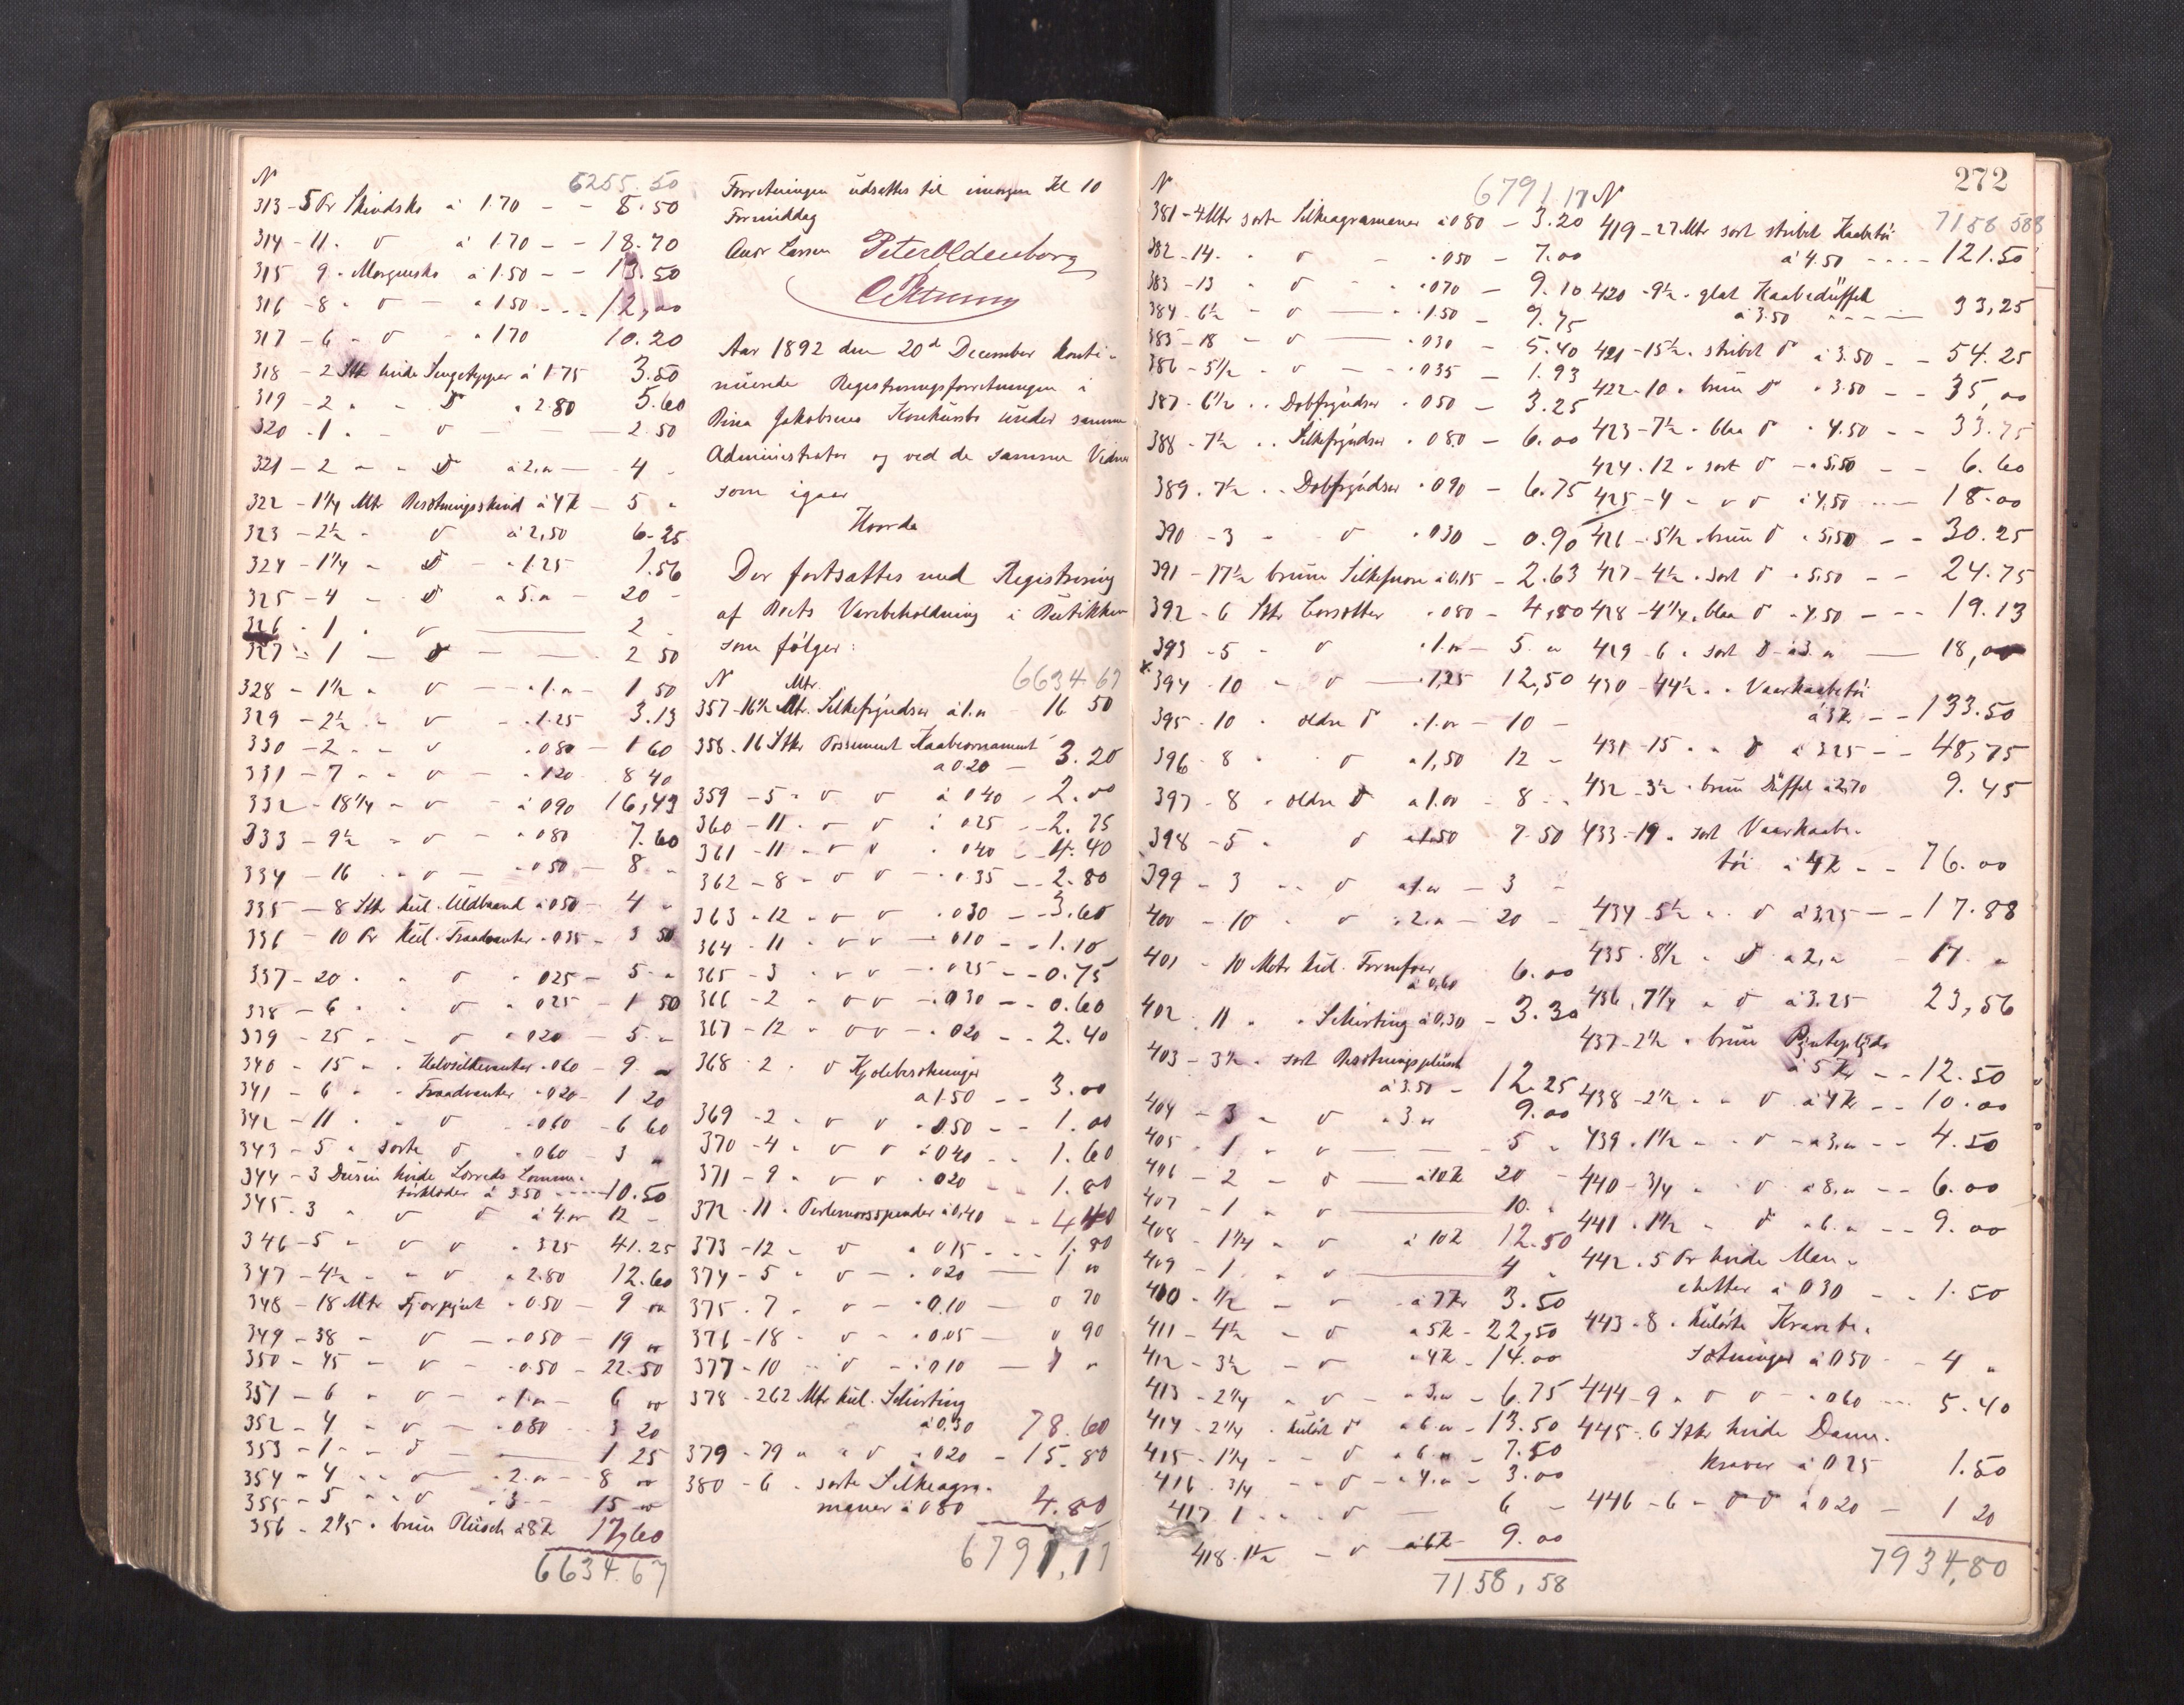 N 6255.50
313 - 5 Pr Skindsko à 1.70 - - 8.50
314 - 11 . d à 1.70 - - 18.70
315 9 . Morgensko à 1.50 - - 13.50
316 - 8 " d - " 1.50 - - - 12,00
317 - 6 - d - " 1 70 10.20
318 - 2 Stk hvide Sengetepper á 1 75 3.50
319 - 2 " - d " 2.80 5.60
320 - 1 " - d - 2.50
321 - 2 " - d à 2," - 4 -
322 - 1 1/4 Mtr Besetningsskind à 4 K - 5 "
323 - 2 1/2 - d à 2,50 6.25
324 - 1 1/4 - d - " 1.25 1.56
325 - 4 - d " 5." - 20 -
326 - 1 . d - 2 -
327 - 1 - d - 2 50
328 - 1 1/2 " d - " 1." - 1 50
329 - 2 1/2 - d - " 1.25 3.13
330 - 2 - - d " 0 80 - 1 60
331 - 7 - - d - " 1 20 8 40
332 - 18 1/4 - d - à 0 90 16,43
333 - 9 1/2 - d - " 0 80 7.60
334 - 16 - d - " 0 50 - 8 "
335 - 8 Stk kul. Uldbaand à 0 50 - 4 "
336 - 10 Pr kul. Traadvanter " 0 35 - 3 50
337 - 20 . " d " 0 25 - 5 - "
338 - 6 " " d " 0 25 - 1 50
339 - 25 - - d " 0 20 - 5 - "
340 - 15 - " Halvsilkevanter " 0 60 - 9 "
341 - 6 " - Traadvanter " 0 20 - 1 20
342 - 11 " . d " 0 60 - 6 60
343 - 5 " sorte d " 0 60 - 3 "
344 - 3 Dusin hvide Lerreds Lomme-
tørkleder à 3.50 - - - 10.50
345 - 3 " d d à 4." 12 -
346 - 5 " d d " 3 25 41.25
347 - 4 1/2 - " d " 2.80 12.60
348 - 18 Mtr " 0.50 - 9 00
349 - 38 - d - " 0 50 - 19 00
350 - 45 - d - " 0.50 - 22.50
351 - 6 " d - " 1." - 6 00
352 - 4 " d - " 0 80 - 3 20
353 - 1 " - d - 1 25
354 - 4 " - d - " 2." - 8 00
355 - 5 " " d " 3 - 15 00
356 - 2 1/5 " brun Plüsch à 8 K 17,60
6634.67
Forretningen udsattes til imorgen Kl 10
Formiddag
Andr Larsen Peter Oldenborg
Aar 1892 den 20d December konti-
nuerede Registreringsforretningen i
Rina Jakobsens Konkursbo under samme
Administrator og ved de samme Vidner
som igaar
Hvorda
Der fortsattes med Registrering
af Boets Varebeholdning i Butikken
som følger:
N Mtr. 6634.67
357 - 16 1/2 Mtr. Silkefryndser à 1." - 16 50
358 - 16 Stkr Possement Kaabeornament
à 0.20 - 3.20
359 - 5 " d d à 0 40 - 2.00
360 - 11 - d d à 0 25 - 2.75
361 - 11 - d d " 0 40 - 4.40
362 - 8 - d d - " 0.35 - - 2.80
363 - 12 - d d " 0 30 - - 3.60
364 - 11 " d d - " 0 10 - - 1.10
365 - 3 " d d - " 0 25 - - 0.75
366 - 2 " d d - " 0 30 - - 0.60
367 - 12 " d d - " 0 20 - - 2.40
368 - 2 . d Kjolebesetninger
à 1.50 - - 3.00
369 - 2 " d d " 0.50 - - 1.00
370 - 4 " d d à 0 40 - - 1.60
371 - 9 " d d " 0 20 - 1.80
372 - 11 " Perlemorsspender à 0,40 - - 4 40
373 - 12 - d " 0 15 - - - 1.80
374 - 5 " d - " 0 20 - 1 00
375 - 7 " d - " 0.10 - 0 70
376 - 18 " d - " 0.05 - 0 90
377 - 10 - d - " 0 10 - 1 "
378 - 262 Mtr kul. Schirting
à 0.30 78.60
379 - 79 " " d " 0 20 - 15.80
380 - 6 . sorte Silkeagra-
maner à 0 80 4.80
6791,17
272
N 6791.17
381 - 4 Mtr sorte Silkeagramaner à 0 80 - 3.20
382 - 14 . d - " 0 50 - 7.00
383 - 13 " d - " 0 70 - 9.10
384 - 6 1/2 - d - " 1.50 - 9.75
385 - 18 - d - " 0 30 - 5.40
386 - 5 1/2 . d - " 0 35 - 1.93
387 - 6 1/2 . . Dobfryndser " 0 50 - 3.25
388 - 7 1/2 . . Silkefryndser " 0 80 - 6.00
389 - 7 1/2 . . Dobfryndser " 0 90 - 6.75
390 - 3 - d " 0 30 - 0.90
391 - 17 1/2 brune Silkesnore à 0,15 - 2.63
392 - 6 Stk Corsetter " 0 80 - 4,80
393 - 5 - d " 1." - 5. "
x 394 - 10 - d - " 1,25 12,50
395 - 10 . eldre d " 1." - 10 -
396 - 8 . d " 1,50 12 -
397 - 8 . eldre d " 1.00 - 8 - "
398 - 5 " d " 1.50 7.50
399 - 3 - - d " 1." - 3 -
400 - 10 " d " 2." - 20 -
401 - 10 Metr kul.
à 0,60 6.00
402 - 11 " " Schirting à 0,30 - 3.30
403 - 3 1/2 . sort Besetningsplüsch
à 3.50 - 12.25
404 - 3 " d " 3 " 9.00
405 - 1 " d - - 5 "
406 - 2 - d - à 10 K 20 -
407 - 1 " d - 10 "
408 - 1 1/4 " d à 10 K 12.50
409 - 1 " d - 4 "
410 - 1/2 - d - à 7 Kr 3.50
411 - 4 1/2 - d " 5 K - 22,50
412 - 3 1/2 - d " 4 K - 14.00
413 - 2 1/4 " d - " 3." - 6.75
414 - 2 1/4 . kulørt d " 6 " - 13.50
415 - 1 1/4 - - d " 6 " - 7.50
416 . 3/4 - - d - " 4." - 3.00
417 1 . . . d - 6 -
418 - 1 1/2 - d à 6 K 9.00
7158,58
N 7158 58
419 - 27 Mtr sort stribet Kaabetøi
à 4.50 - - - - 121.50
420 - 9 1/2 . glat Kaabedüffel
à 3.50 - - - - 33,25
421 - 15 1/2 . stribet d à 3.50 - - 54.25
422 - 10 " brun d " 3.50 - - 35,00
423 - 7 1/2 . blaa d " 4.50 - - 33.75
424 . 12 " sort d - " 5,50 - - 6.60
425 - 4 - d d à 4,50 - - 18.00
426 - 5 1/2 . brun d " 5,50 - - 30.25
427 - 4 1/2 . sort d " 5.50 - - 24.75
428 - 4 1/4 . blaa d " 4.50 - - - 19.13
429 - 6 " sort d - à 3." - 18,00
430 - 44 1/2 . " Vaarkaabetøi
à 3 K - - 133.50
431 - 15 " " d à 3 25 - - 48,75
432 - 3 1/2 . brun Düffel à 2,70 9.45
433 - 19 " sort Vaarkaabe-
tøi à 4 K - - 76.00
434 - 5 1/2 " . d à 3,25 - - 17.88
435 . 8 1/2 - d " 2," - 17. "
436 . 7 1/4 " d à 3.25 23,56
437 - 2 1/2 . brun
à 5 Kr - - 12.50
438 - 2 1/2 " " d à 4 K - - 10.00
439 . 1 1/2 " " d - à 3," - - 4.50
440 - 3/4 " " d " 8," - - 6.00
441 . 1 1/2 " d " 6." - - 9.00
442 . 5 Pr hvide Man-
chetter à 0 30 - - 1.50
443 . 8 . kulørte Kravebe-
setninger à 0 50 - 4 "
444 - 9 " d d - " 0 60 - - - 5.40
445 - 6 Stkr hvide Dame-
kraver à 0 25 1.50
446 - 6 " d d à 0 20 - 1 20
7934,80